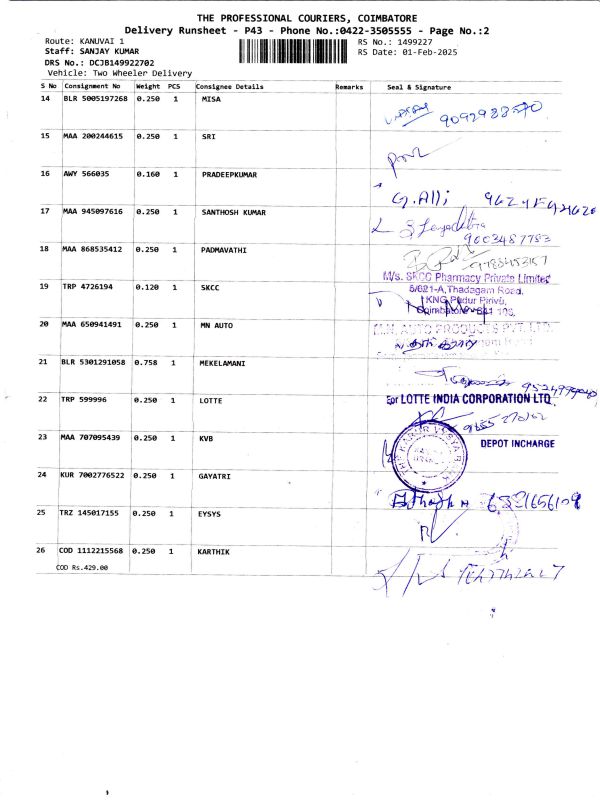 THE PROFESSIONAL COURIERS, COIMBATORE
Delivery Runsheet - P43 - Phone No.:0422-3505555 - Page No.:2
Route: KANUVAI 1 RS No.: 1499227
Staff: SANJAY KUMAR RS Date: 01-Feb-2025
DRS No.: DCJB149922702
Vehicle: Two Wheeler Delivery
S No Consignment No Weight PCS Consignee Details Remarks Seal & Signature
14 BLR 5005197268 0.250 1 MISA
15 MAA 200244615 0.250 1 SRI
16 AWY 566035 0.160 1 PRADEEPKUMAR
G.Alli
17 MAA 945097616 0.250 1 SANTHOSH KUMAR
9003487783
18 MAA 868535412 0.250 1 PADMAVATHI
M/s. SKCC Pharmacy Private Limited
19 TRP 4726194 0.120 1 SKCC
5/621-A, Thadagam Road,
KNG Pudur Pirivu,
Coimbatore-641 108.
20 MAA 650941491 0.250 1 MN AUTO
M.N. AUTO PRODUCTS PVT. LTD.
21 BLR 5301291058 0.758 1 MEKELAMANI
22 TRP 599996 0.250 1 LOTTE
For LOTTE INDIA CORPORATION LTD.
23 MAA 707095439 0.250 1 KVB
DEPOT INCHARGE
24 KUR 7002776522 0.250 1 GAYATRI
25 TRZ 145017155 0.250 1 EYSYS
26 COD 1112215568 0.250 1 KARTHIK
COD Rs.429.00